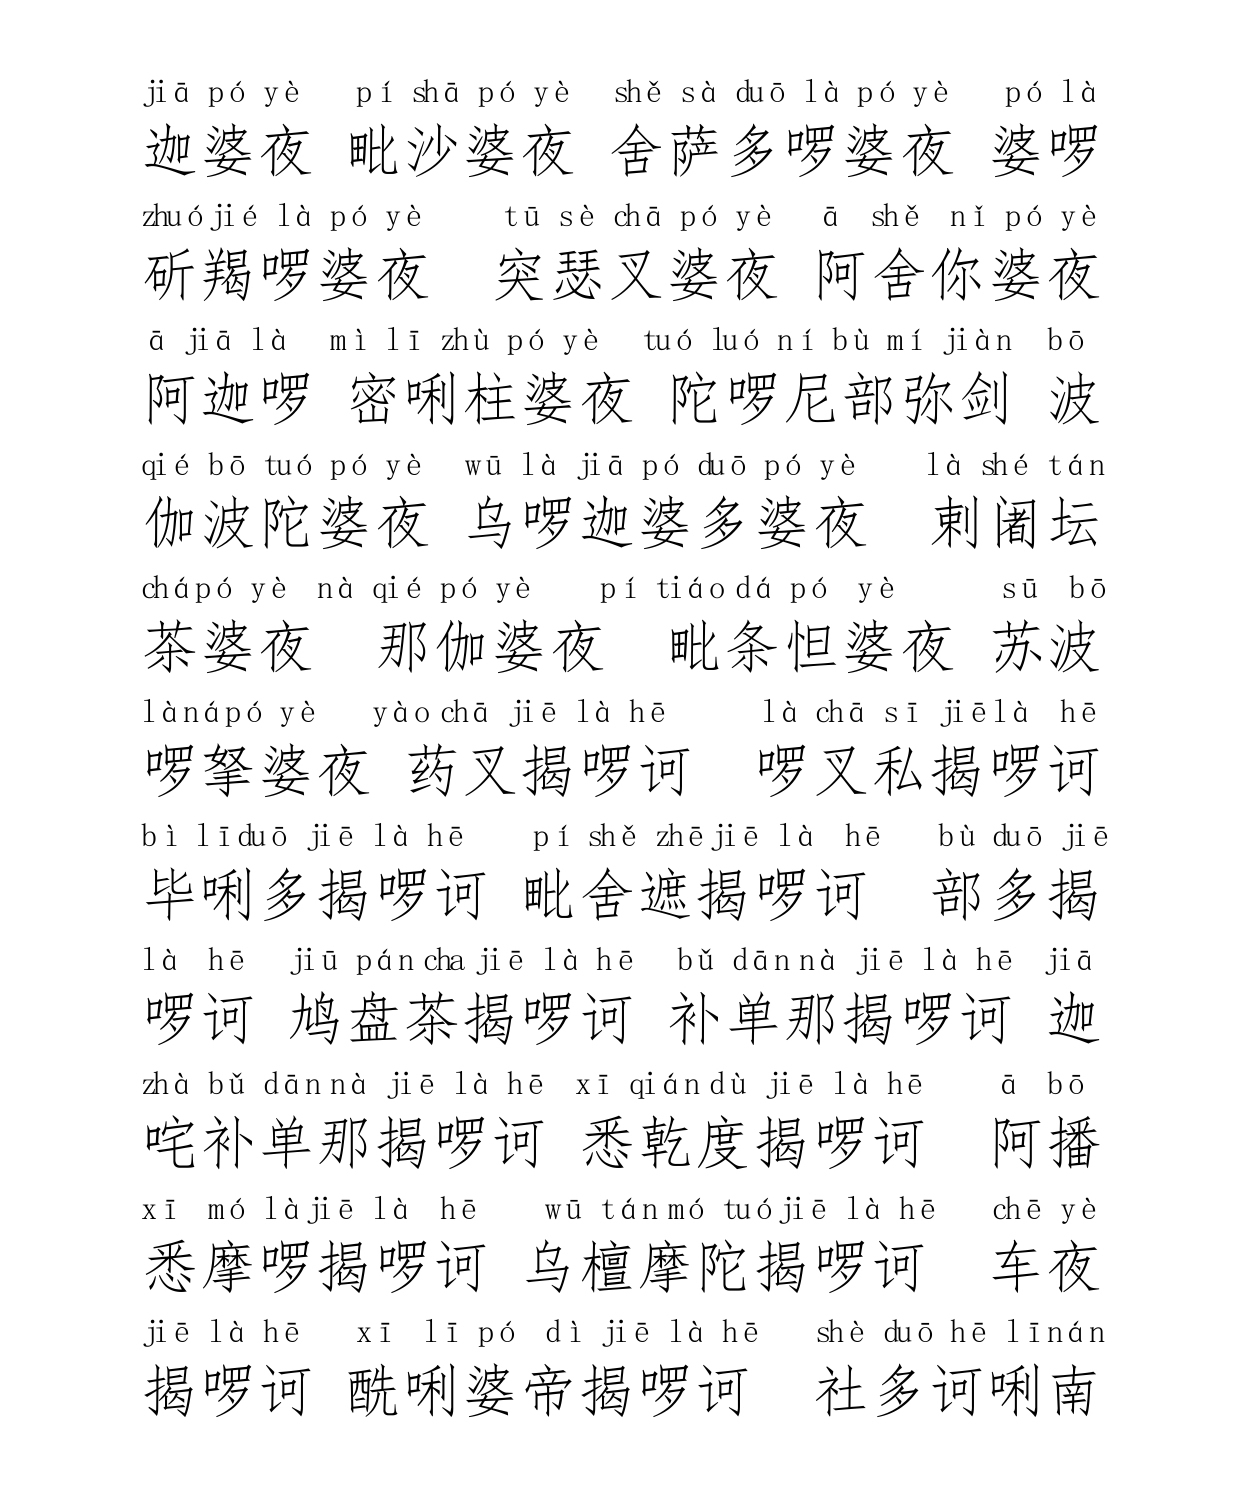 jiā pó yè pí shā pó yè shě sà duō là pó yè pó là
迦婆夜 毗沙婆夜 舍萨多啰婆夜 婆啰
zhuó jié là pó yè tū sè chā pó yè ā shě nǐ pó yè
斫羯啰婆夜 突瑟叉婆夜 阿舍你婆夜
ā jiā là mì lī zhù pó yè tuó luó ní bù mí jiàn bō
阿迦啰 密唎柱婆夜 陀啰尼部弥剑 波
qié bō tuó pó yè wū là jiā pó duō pó yè là shé tán
伽波陀婆夜 乌啰迦婆多婆夜 剌阇坛
chá pó yè nà qié pó yè pí tiáo dá pó yè sū bō
茶婆夜 那伽婆夜 毗条怛婆夜 苏波
là ná pó yè yào chā jiē là hē là chā sī jiē là hē
啰拏婆夜 药叉揭啰诃 啰叉私揭啰诃
bì lī duō jiē là hē pí shě zhē jiē là hē bù duō jiē
毕唎多揭啰诃 毗舍遮揭啰诃 部多揭
là hē jiū pán cha jiē là hē bǔ dān nà jiē là hē jiā
啰诃 鸠盘茶揭啰诃 补单那揭啰诃 迦
zhà bǔ dān nà jiē là hē xī qián dù jiē là hē ā bō
咤补单那揭啰诃 悉乾度揭啰诃 阿播
xī mó là jiē là hē wū tán mó tuó jiē là hē chē yè
悉摩啰揭啰诃 乌檀摩陀揭啰诃 车夜
jiē là hē xī lī pó dì jiē là hē shè duō hē lī nán
揭啰诃 酰唎婆帝揭啰诃 社多诃唎南